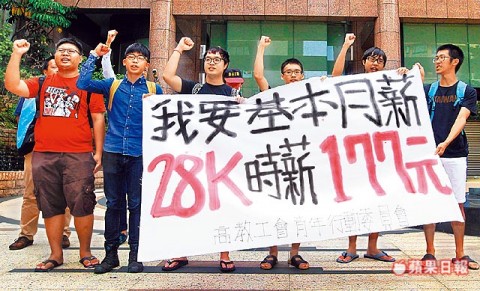 我要基本月薪
28K時薪177元
高教工會青年行動委員會
蘋果日報